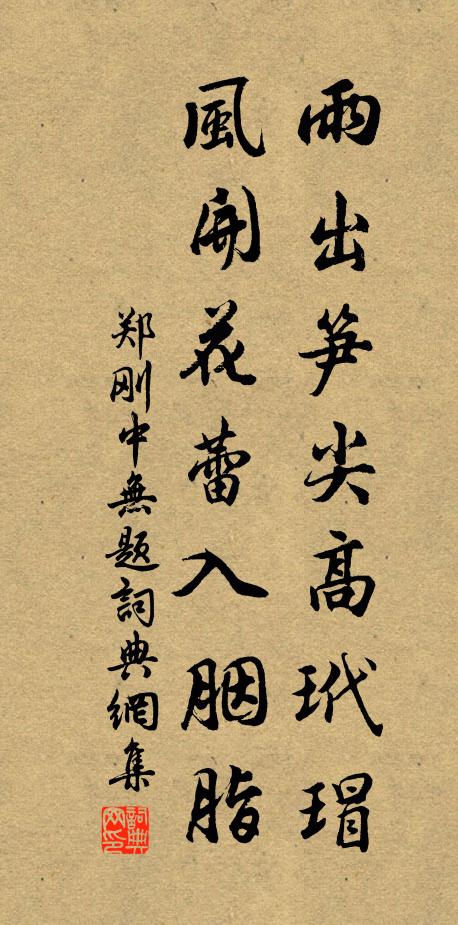 雨出笋尖高玳瑁
風開花蕾入胭脂
郑刚中無题詞典網集
詞典网印